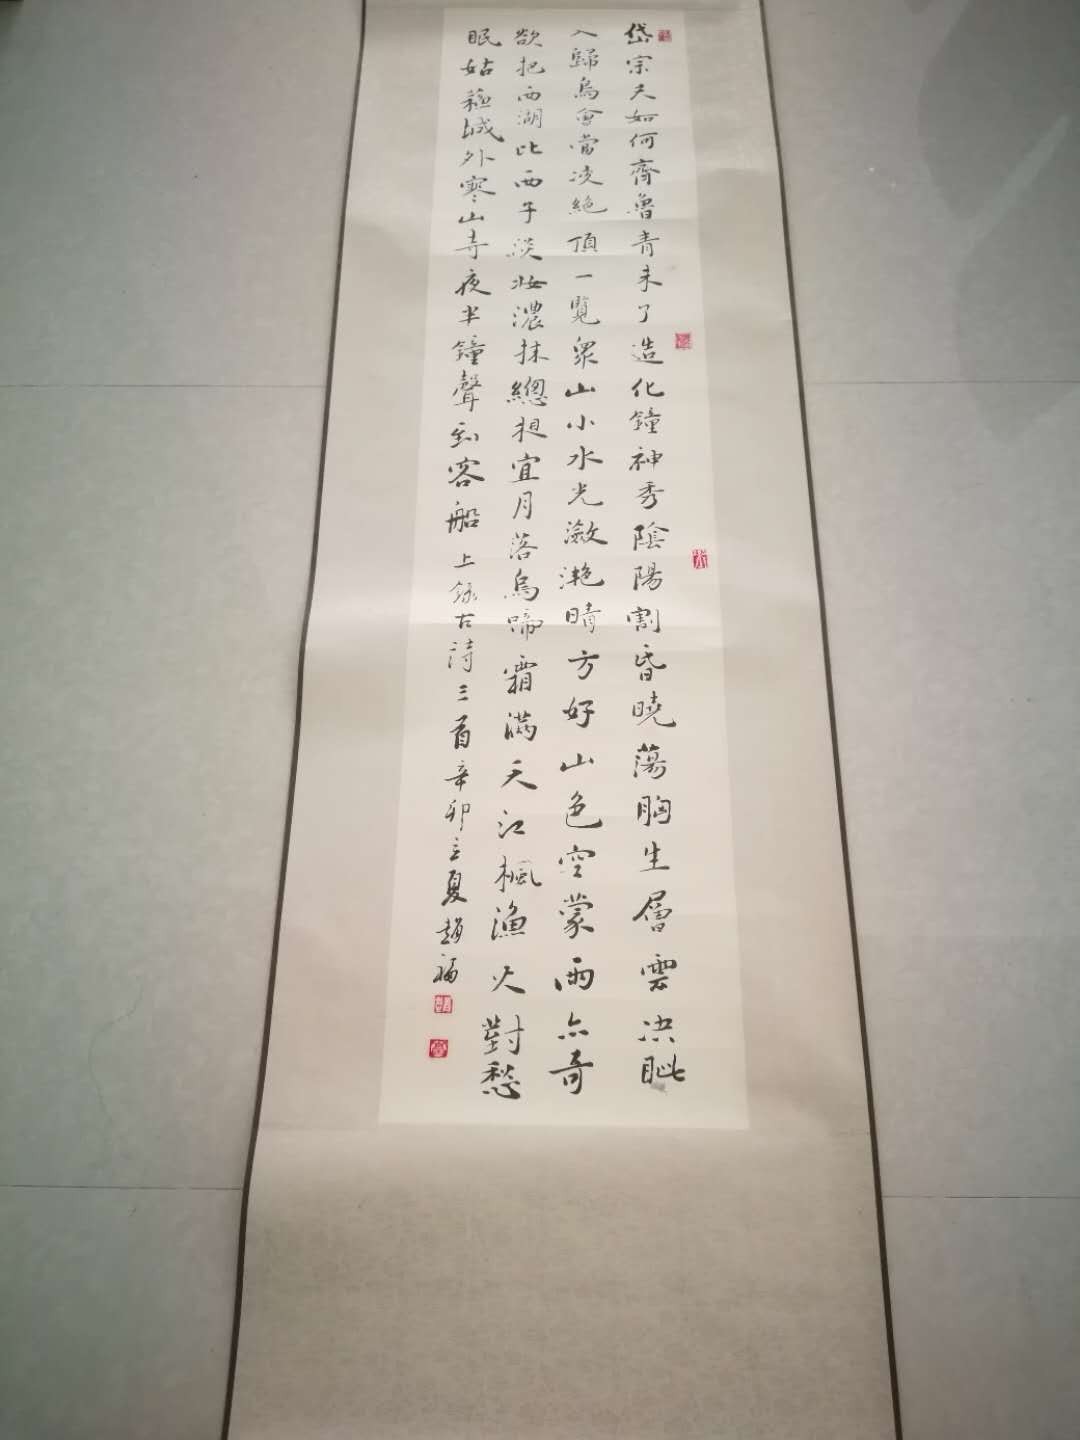 岱宗夫如何齊魯青未了造化鐘神秀陰陽割昏曉蕩胸生層雲决眦
入歸鳥會當凌絶頂一覽眾山小水光瀲灔晴方好山色空蒙雨亦奇
欲把西湖比西子淡妝濃抹總相宜月落烏啼霜滿天江楓漁火對愁
眠姑蘇城外寒山寺夜半鐘聲到客船上錄古詩三首辛卯立夏趙福